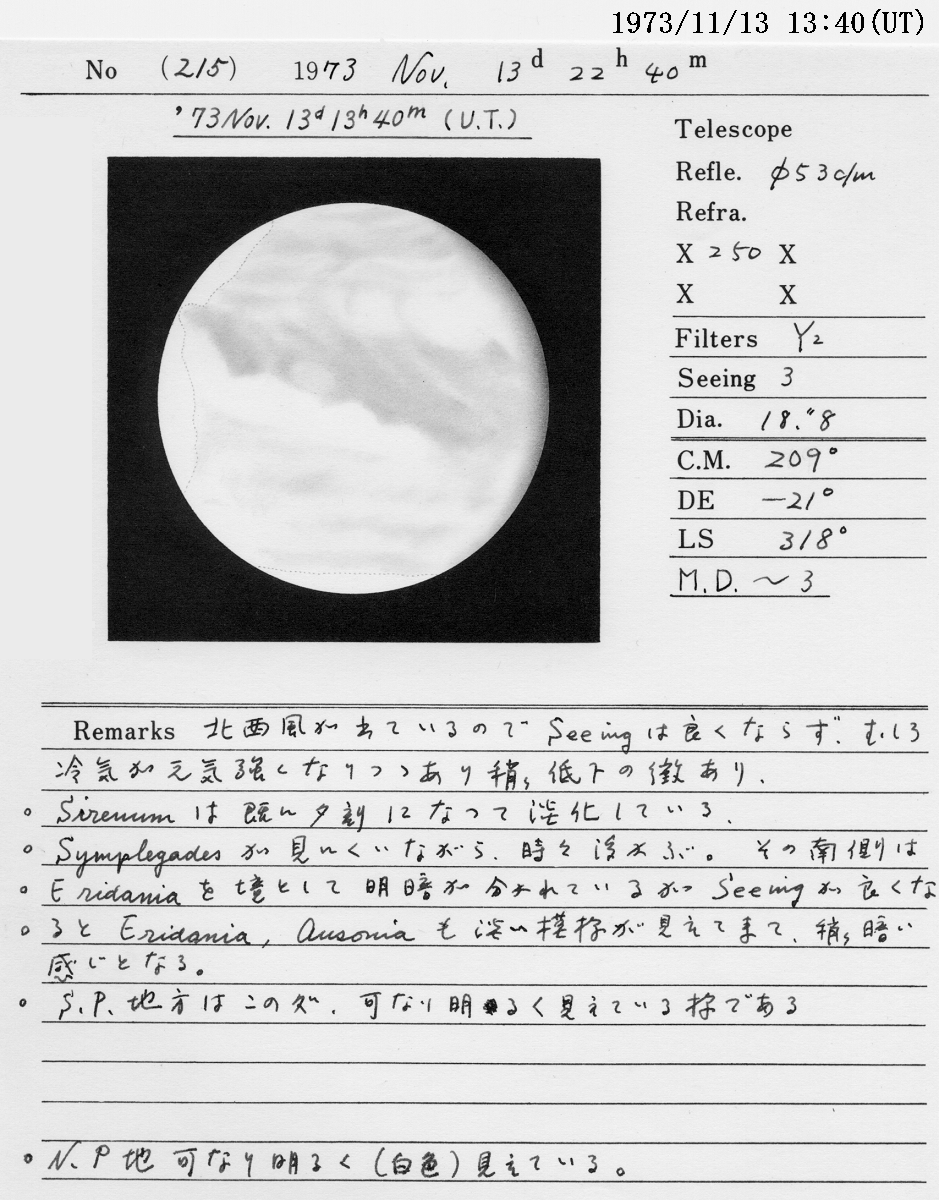 1973/11/13 13:40(UT)
No (215) 1973 Nov. 13d 22h 40m
'73 Nov. 13d 13h 40m (U.T.)
Telescope
Refle. φ53c/m
Refra.
X 250 X
X X
Filters Y2
Seeing 3
Dia. 18."8
C.M. 209°
DE -21°
LS 318°
M.D. ~3
Remarks 北西風が出ているので Seeingは良くならず、むしろ
冷気が元気強くなりつつあり稍々低下の徴あり、
。Sirenumは既に夕刻になって淡化している、
。Symplegadesが見にくいながら、時々浮かぶ。その南側は
。Eridaniaを境として明暗が分かれているが Seeingが良くな
。ると Eridania, Ausoniaも淡い模様が見えて来て、稍々暗い
感じとなる。
。S.P.地方はこの所、可なり明るく見えている様である
。N.P地 可なり明るく(白色)見えている。